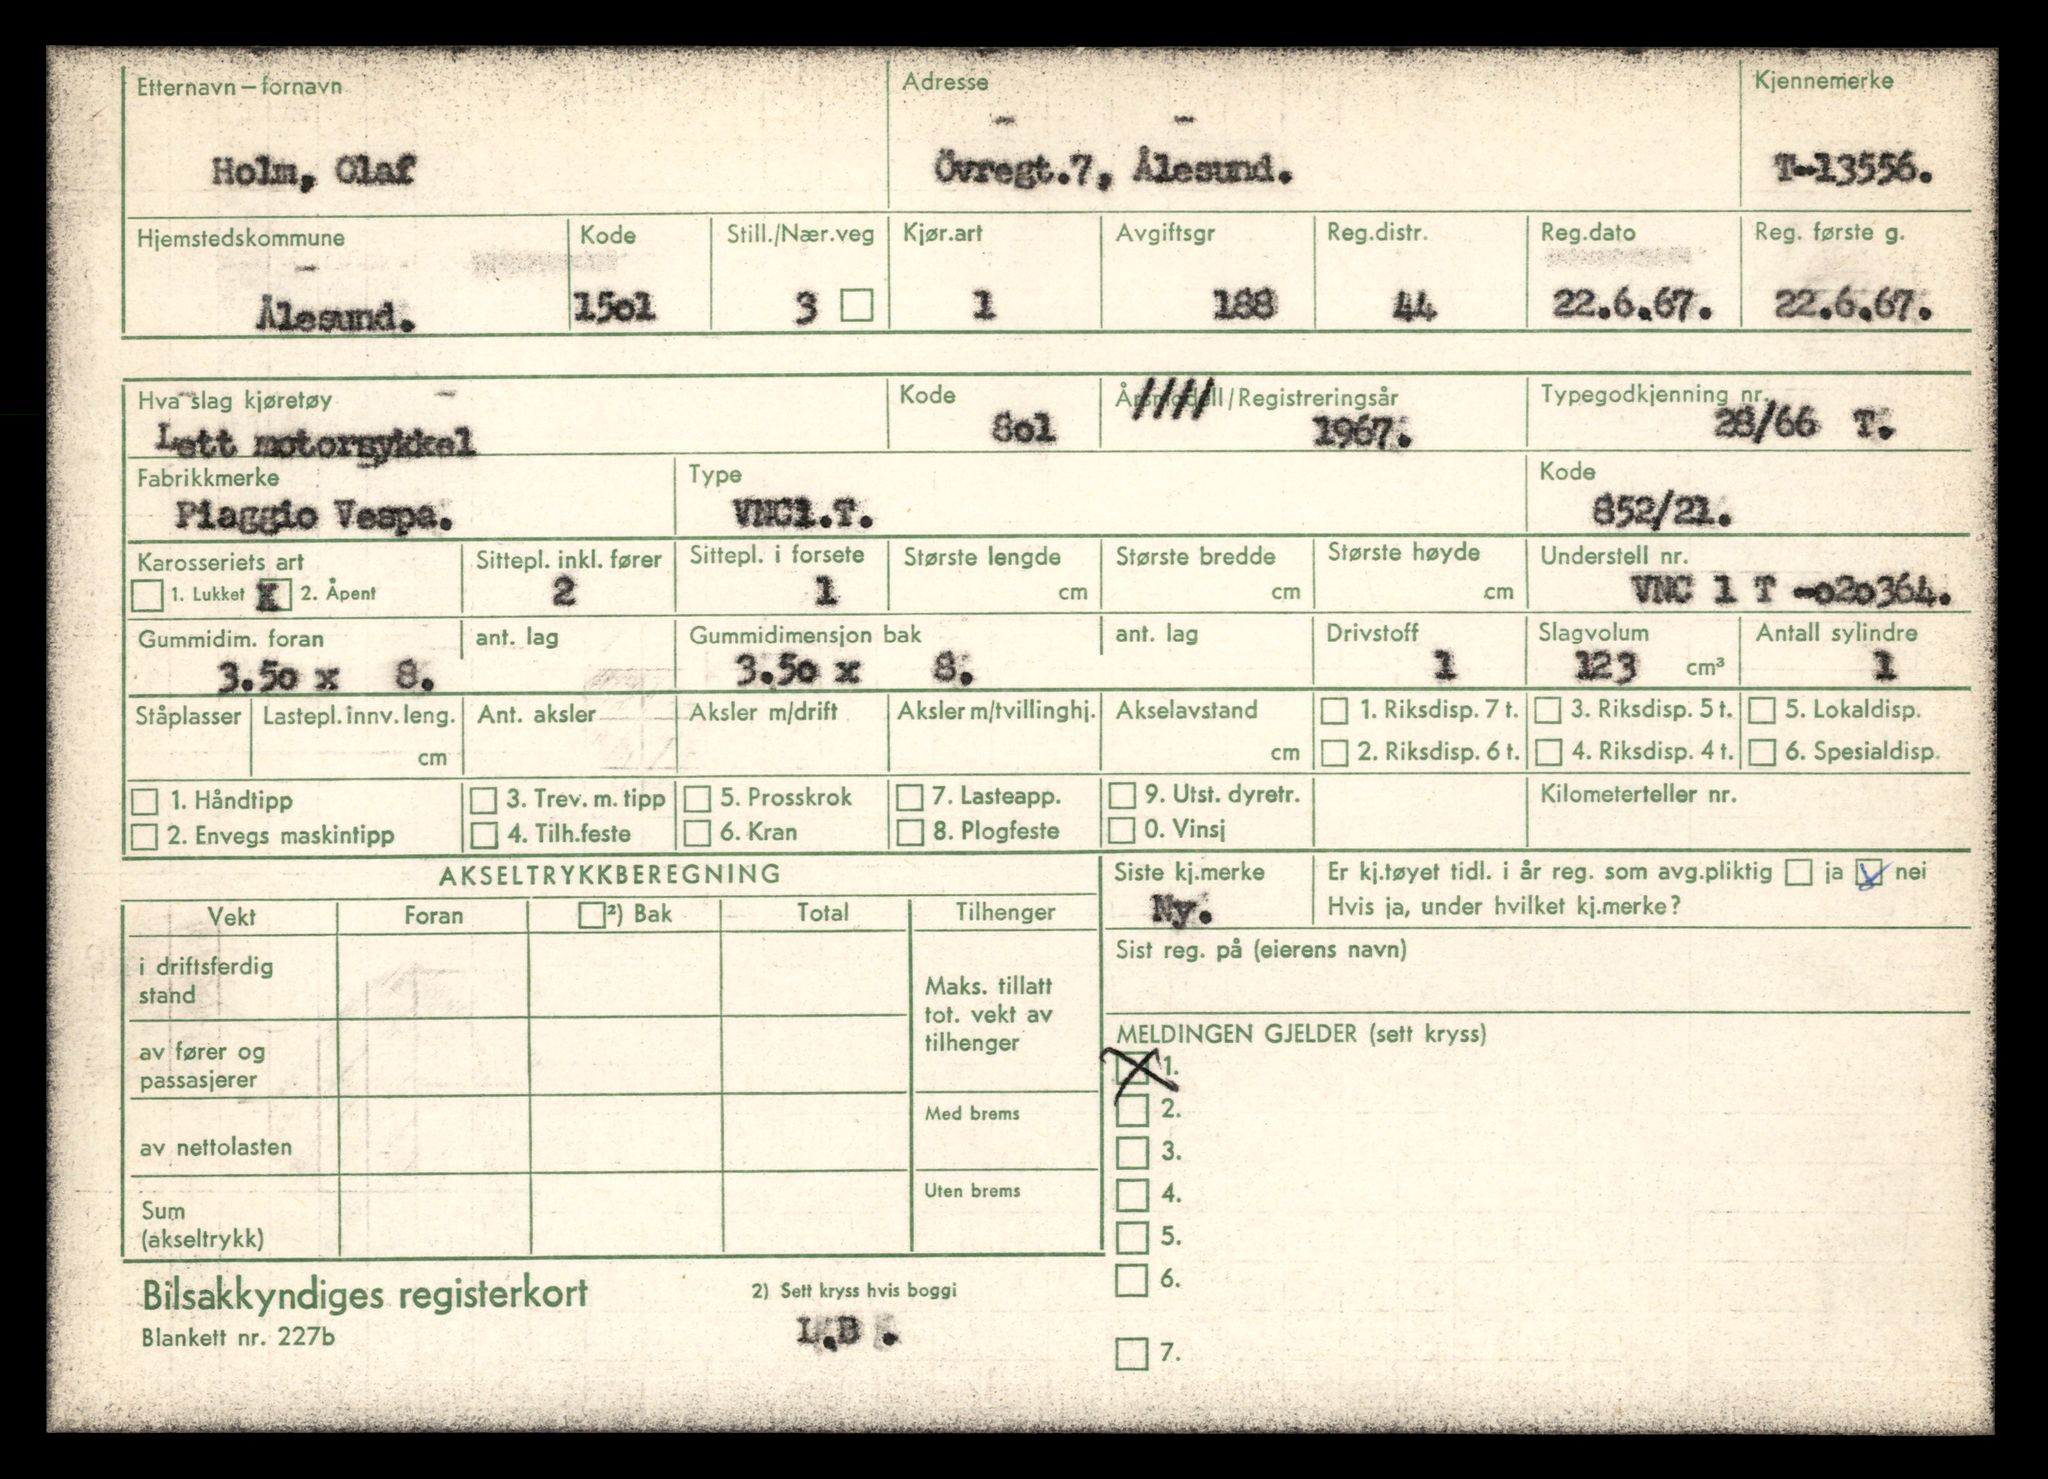 Etternavn – fornavn Adresse Kjennemerke
Holm, Olaf Övregt.7, Ålesund. T-13556.
Hjemstedskommune Kode Still./Nær.veg Kjør.art Avgiftsgr Reg.distr. Reg.dato Reg. første g.
Ålesund. 15o1 3 1 188 44 22.6.67. 22.6.67.
Hva slag kjøretøy Kode Årsmodell/Registreringsår Typegodkjenning nr.
Lett motorsykkel 8o1 //// 1967. 28/66 T.
Fabrikkmerke Type Kode
Piaggio Vespa. VNC1.T. 852/21.
Karosseriets art Sittepl. inkl. fører Sittepl. i forsete Største lengde Største bredde Største høyde Understell nr.
1. Lukket X 2. Åpent 2 1 cm cm cm VNC 1 T -o2o364.
Gummidim. foran ant. lag Gummidimensjon bak ant. lag Drivstoff Slagvolum Antall sylindre
3.5o x 8. 3.5o x 8. 1 123 cm³ 1
Ståplasser Lastepl. innv. leng. Ant. aksler Aksler m/drift Aksler m/tvillinghj. Akselavstand 1. Riksdisp. 7 t. 3. Riksdisp. 5 t. 5. Lokaldisp.
cm cm 2. Riksdisp. 6 t. 4. Riksdisp. 4 t. 6. Spesialdisp.
1. Håndtipp 3. Trev. m. tipp 5. Prosskrok 7. Lasteapp. 9. Utst. dyretr. Kilometerteller nr.
2. Envegs maskintipp 4. Tilh.feste 6. Kran 8. Plogfeste 0. Vinsj
AKSELTRYKKBEREGNING Siste kj.merke Er kj.tøyet tidl. i år reg. som avg.pliktig ja nei
Vekt Foran ²) Bak Total Tilhenger Ny. Hvis ja, under hvilket kj.merke?
Sist reg. på (eierens navn)
i driftsferdig
stand
Maks. tillatt
tot. vekt av
tilhenger
MELDINGEN GJELDER (sett kryss)
av fører og
passasjerer
X 1.
Med brems 2.
av nettolasten 3.
Uten brems 4.
Sum
(akseltrykk) 5.
6.
Bilsakkyndiges registerkort 2) Sett kryss hvis boggi
Blankett nr. 227b L.B .
7.